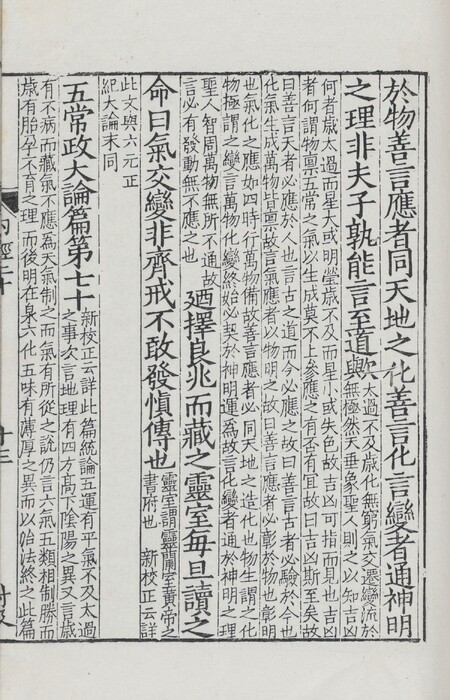 於物善言應者同天地之化善言化言變者通神明
之理非夫子孰能言至道歟
太過不及歲化無窮氣交遷變流於
無極然天垂象聖人則之以知吉凶
何者歲太過而星大或明瑩歲不及而星小或失色故吉凶可指而見也吉凶
者何謂物禀五常之氣以生成莫不上參應之有否有宜故曰吉凶斯至矣故
曰善言天者必應於人也言古之道而今必應之故曰善言古者必驗於今也
化氣生成萬物皆禀故言氣應者以物明之故曰善言應者必彰於物也彰明
也氣化之應如四時行萬物備故善言應者必同天地之造化也物生謂之化
物極謂之變言萬物化變終始必契於神明運為故言化變者通於神明之理
聖人智周萬物無所不通故
言必有發動無不應之也
廼擇良兆而藏之靈室每旦讀之
命曰氣交變非齊戒不敢發慎傳也
靈室謂靈蘭室黃帝之
書府也 新校正云詳
此文與六元正
紀大論末同
五常政大論篇第七十
新校正云詳此篇統論五運有平氣不及太過
之事次言地理有四方高下陰陽之異又言歲
有不病而藏氣不應為天氣制之而氣有所從之說仍言六氣五類相制勝而
歲有胎孕不育之理而後明在泉六化五味有薄厚之異而以治法終之此篇